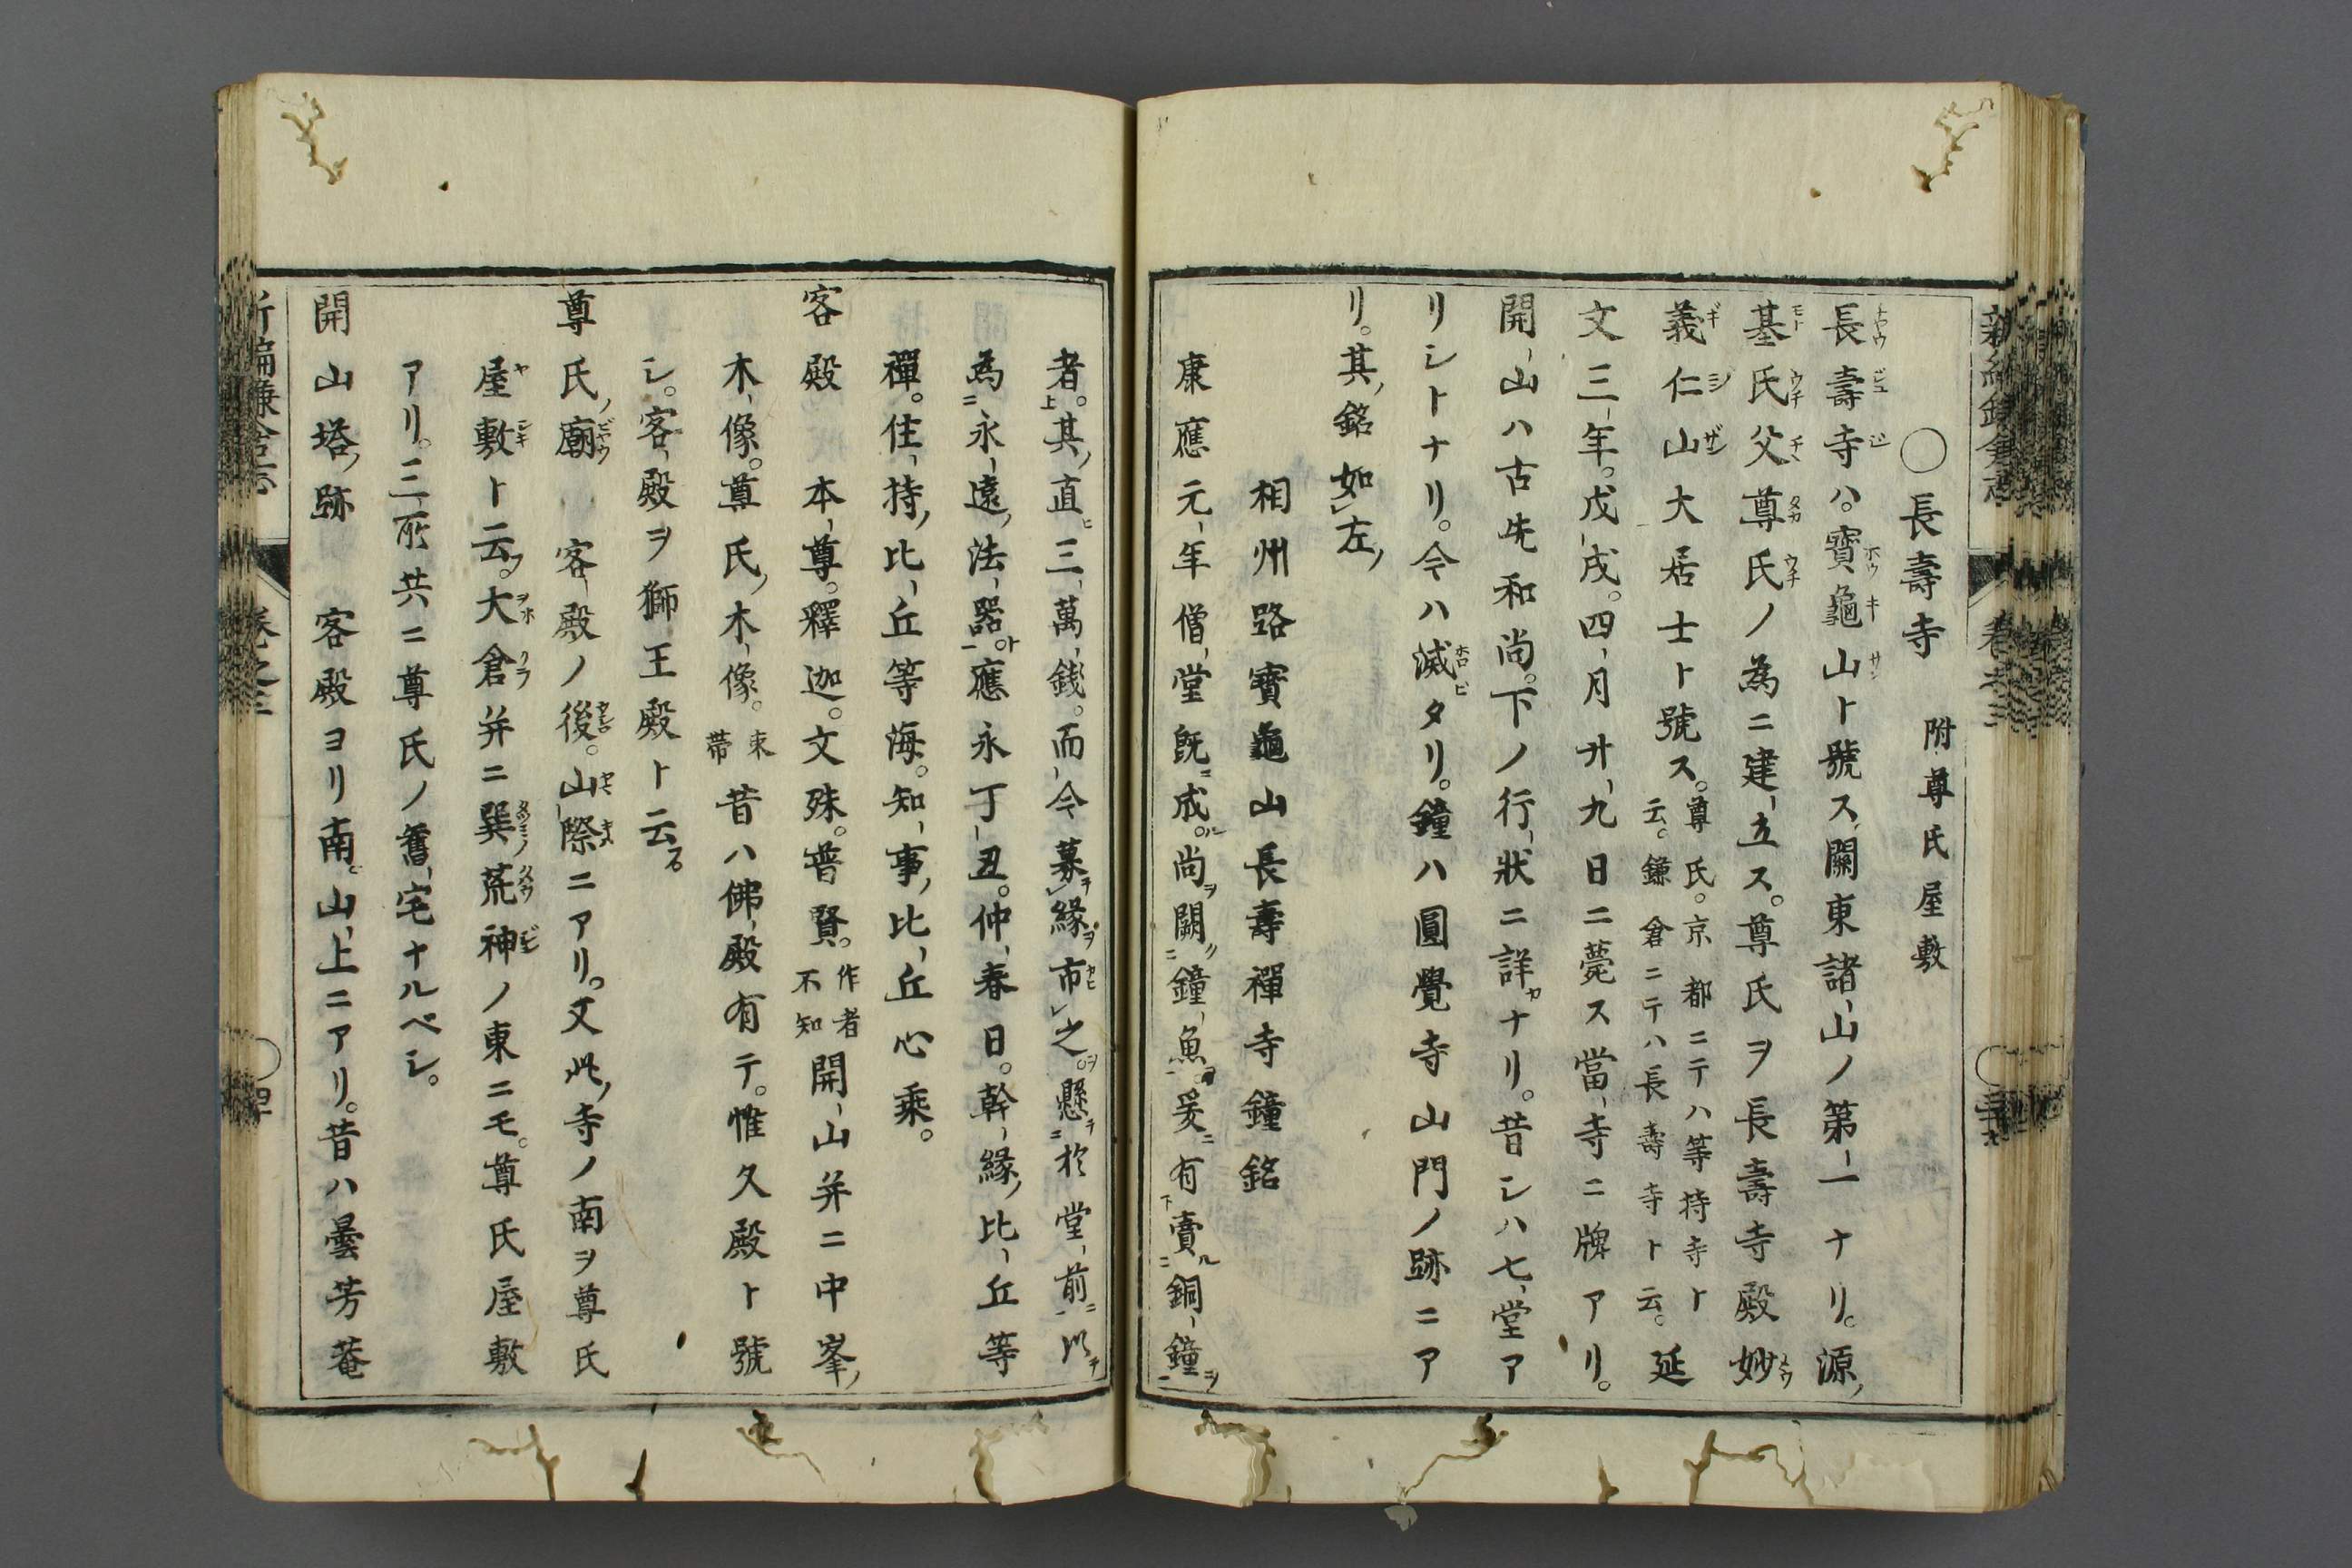 〇長壽寺 附尊氏屋敷
長壽寺ハ。寶龜山ト號ス。關東諸山ノ第一ナリ。源
基氏父尊氏ノ為ニ建立ス。尊氏ヲ長壽寺殿妙
義仁山大居士ト號ス。尊氏。京都ニテハ等持寺ト云。鎌倉ニテハ長壽寺ト云。延
文三年。戊戌。四月廿九日ニ薨ス當寺ニ牌アリ。
開山ハ古先和尚。下ノ行狀ニ詳ナリ。昔シハ七堂ア
リシトナリ。今ハ滅タリ。鐘ハ圓覺寺山門ノ跡ニア
リ。其銘如左
相州路寶龜山長壽禪寺鐘銘
康應元年僧堂既成。尚闕鐘魚。爰有賣銅鐘
者。其直三萬錢。而今募緣市之。懸於堂前以
為永遠法器。應永丁丑。仲春日。幹緣比丘等
禪。住持比丘等海。知事比丘心乘。
客殿 本尊。釋迦。文殊。普賢。作者不知 開山并ニ中峯
木像。尊氏木像。束帶 昔ハ佛殿有テ。惟久殿ト號
シ。客殿ヲ獅王殿ト云フ
尊氏廟 客殿ノ後。山際ニアリ。又此寺ノ南ヲ尊氏
屋敷ト云フ。大倉并ニ巽荒神ノ東ニモ。尊氏屋敷
アリ。三所共ニ尊氏ノ舊宅ナルベシ。
開山塔跡 客殿ヨリ南。山上ニアリ。昔ハ曇芳菴